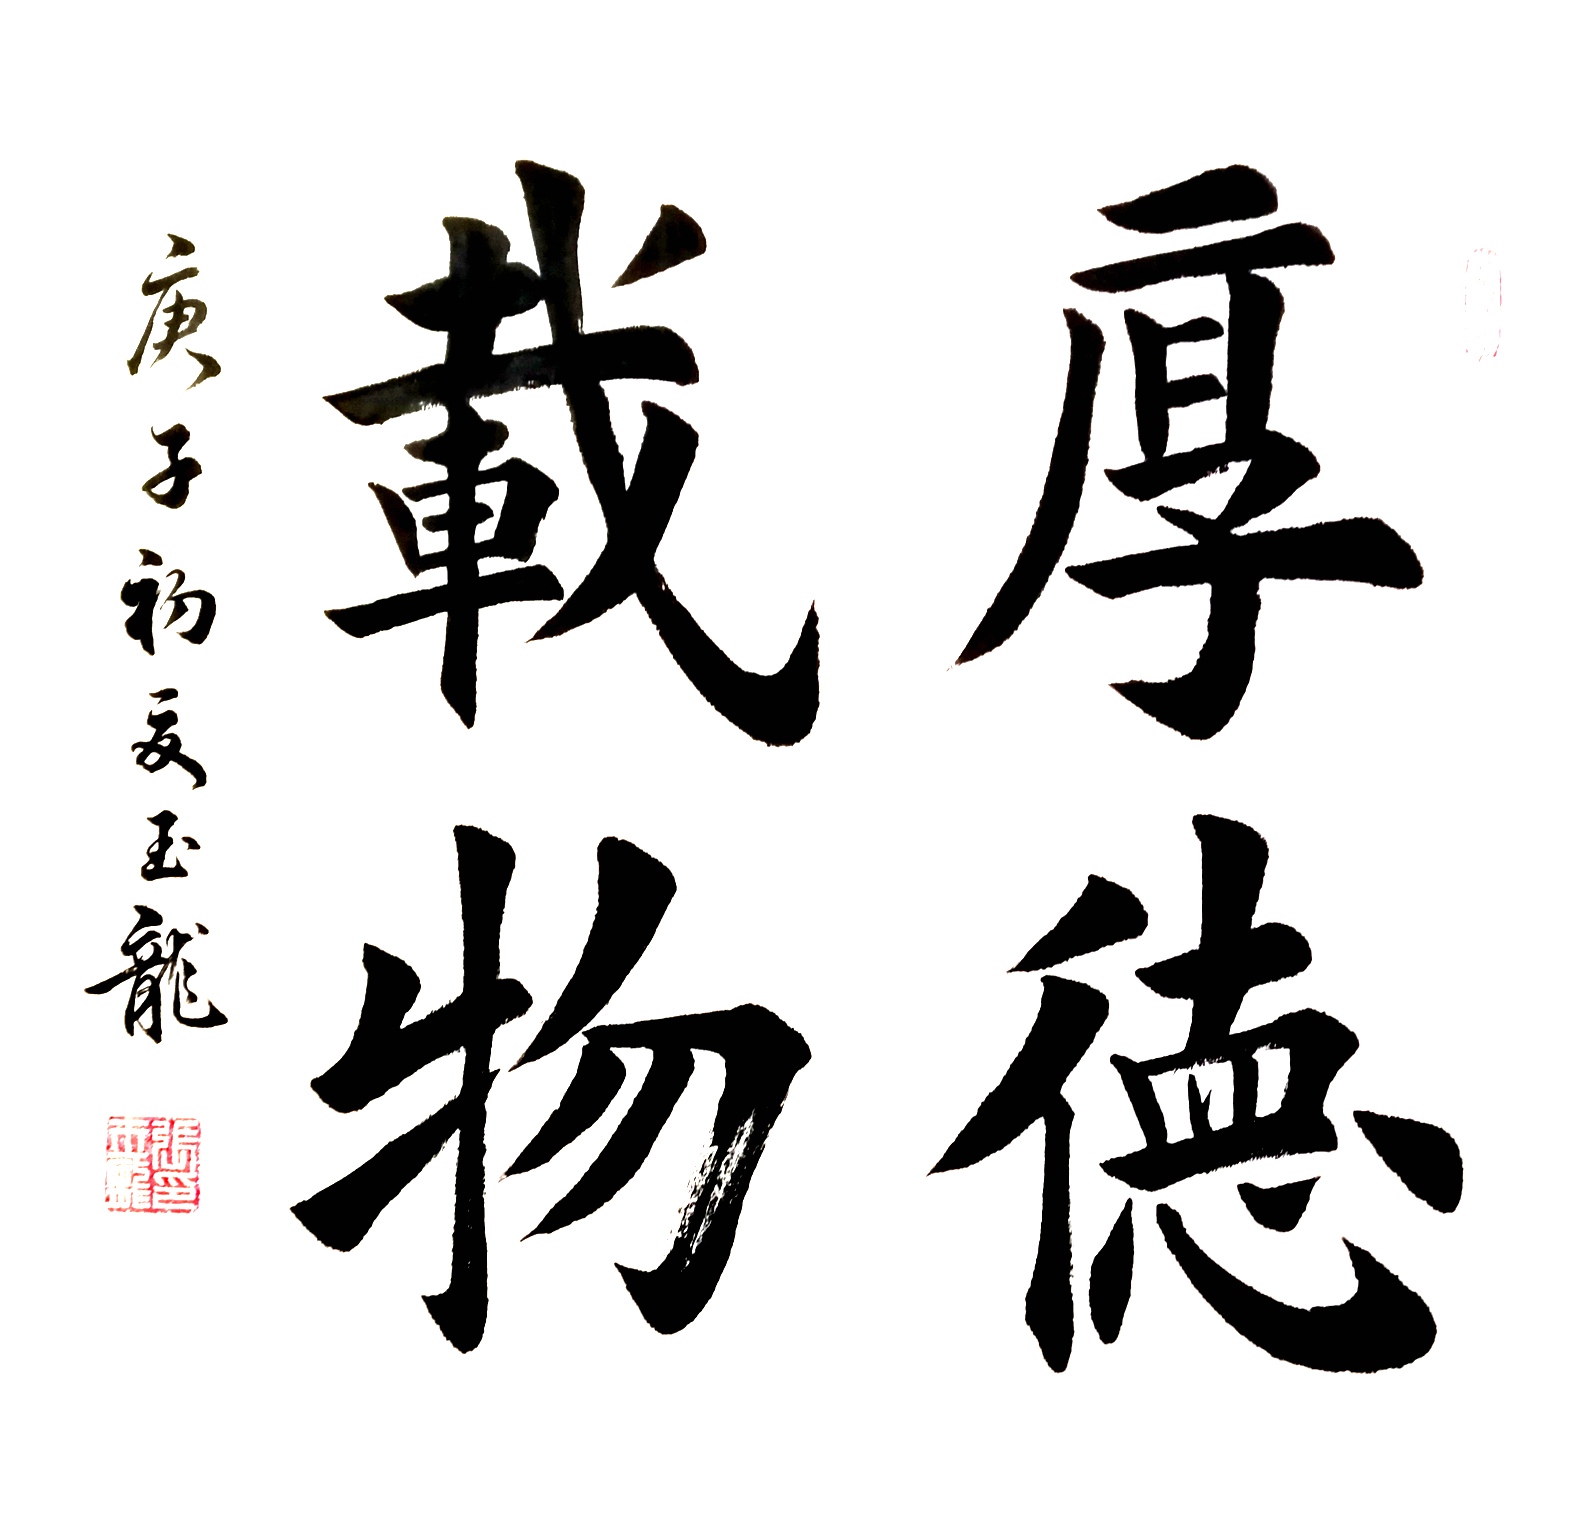 厚德
載物
庚子初夏玉龍